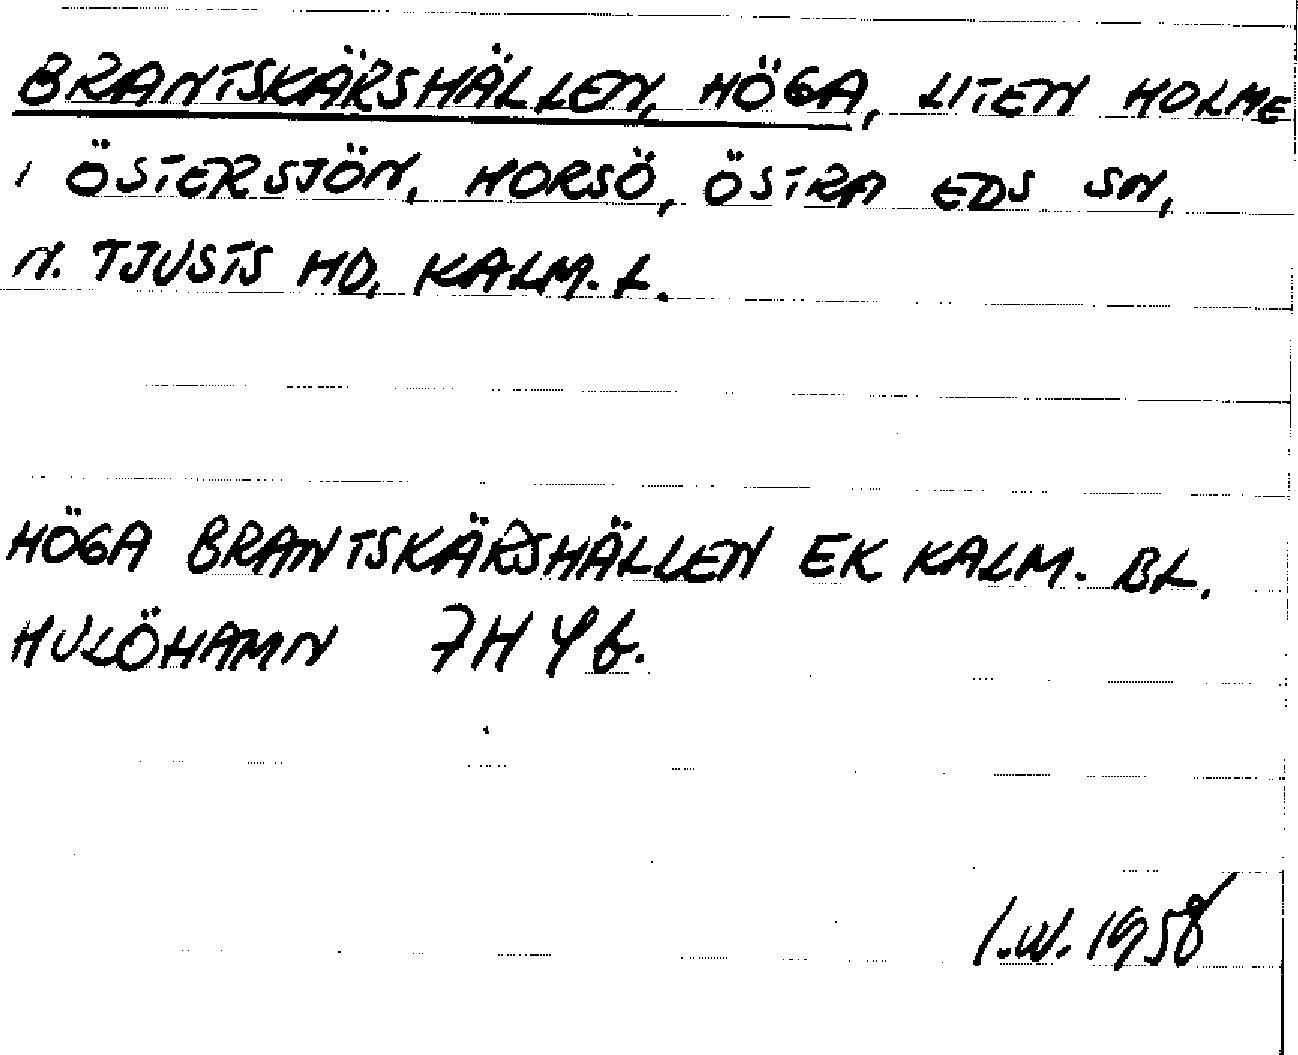 BRANTSKÄRSHÄLLEN, HÖGA, LITEN HOLME
I ÖSTERSJÖN, HORSÖ, ÖSTRA EDS SN,
N. TJUSTS HD, KALM. L.
HÖGA BRANTSKÄRSHÄLLEN EK KALM. BL.
HULÖHAMN 7H 4b.
I.W. 1958